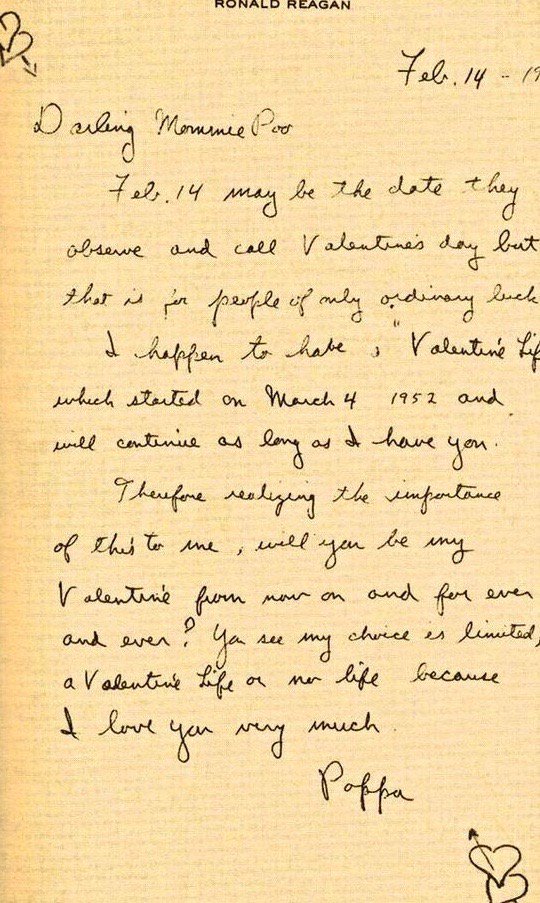 RONALD REAGAN
Feb. 14 - 19
Darling Mommie Poo
Feb. 14 may be the date they
observe and call Valentine's day but
that is for people of only ordinary luck
I happen to have a "Valentine Lif
which started on March 4 1952 and
will continue as long as I have you.
Therefore realizing the importance
of this to me, will you be my
Valentine from now on and for ever
and ever? You see my choice is limited,
a Valentine Life or no life because
I love you very much.
Poppa